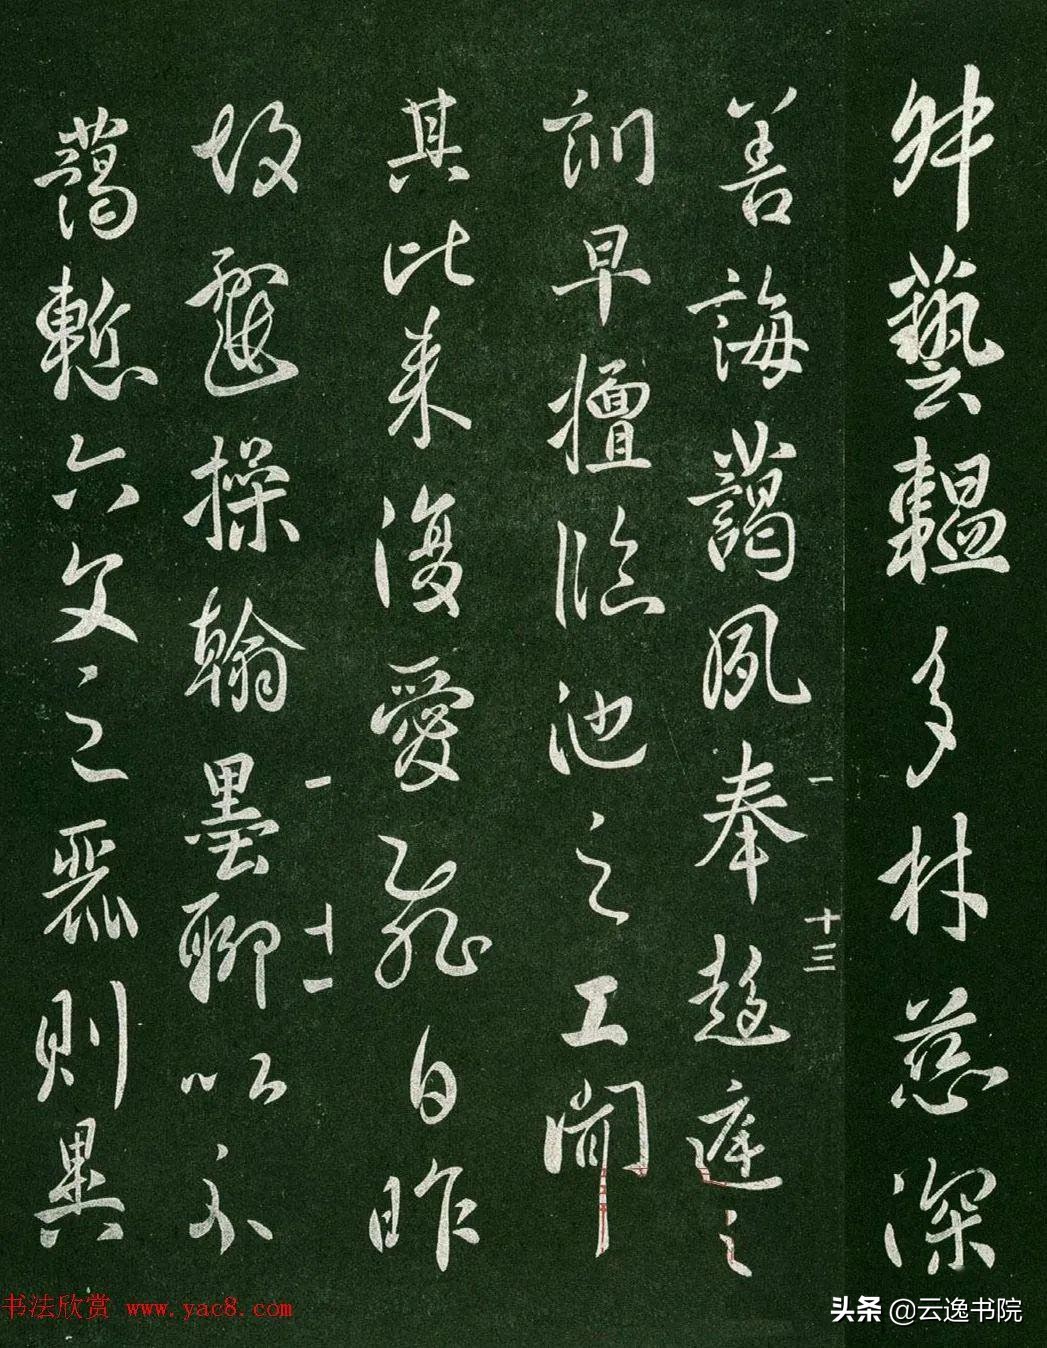 藝韞多材慈深
善誨藹夙奉趍庭之
一 十三
訓早擅臨池之工聞
其比來復愛飛白昨
一 十一
故遣操翰墨聊以示
藹慙六文之麗則異
书法欣赏 www.yac8.com
头条 @云逸书院